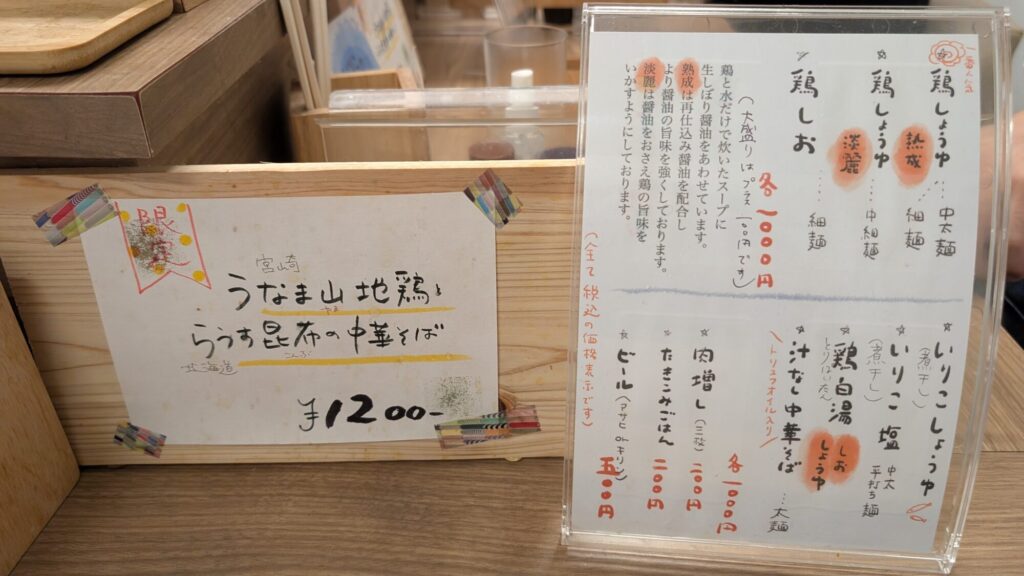 限定
宮崎
うなま山地鶏と
やま
らうす昆布の中華そば
北海道
こんぶ
¥1200-
一番人気
鶏しょうゆ 熟成 … 中太麺 細麺
鶏しょうゆ 淡麗 … 中細麺
鶏しお … 細麺
各一〇〇〇円
(大盛りはプラス一〇〇円です)
鶏と水だけで炊いたスープに
生しぼり醤油をあわせています。
熟成は再仕込み醤油を配合し
より醤油の旨味を強くしております。
淡麗は醤油をおさえ鶏の旨味を
いかすようにしております。
(全て税込の価格表示です)
いりこしょうゆ
(煮干し)
いりこ塩 中太 平打ち麺
(煮干し)
鶏白湯 しお しょうゆ
とりぱいたん
汁なし中華そば … 太麺
\トリュフオイル入り/
各一〇〇〇円
肉増し(三枚) 二〇〇円
たきこみごはん 二〇〇円
ビール(アサヒorキリン) 五〇〇円